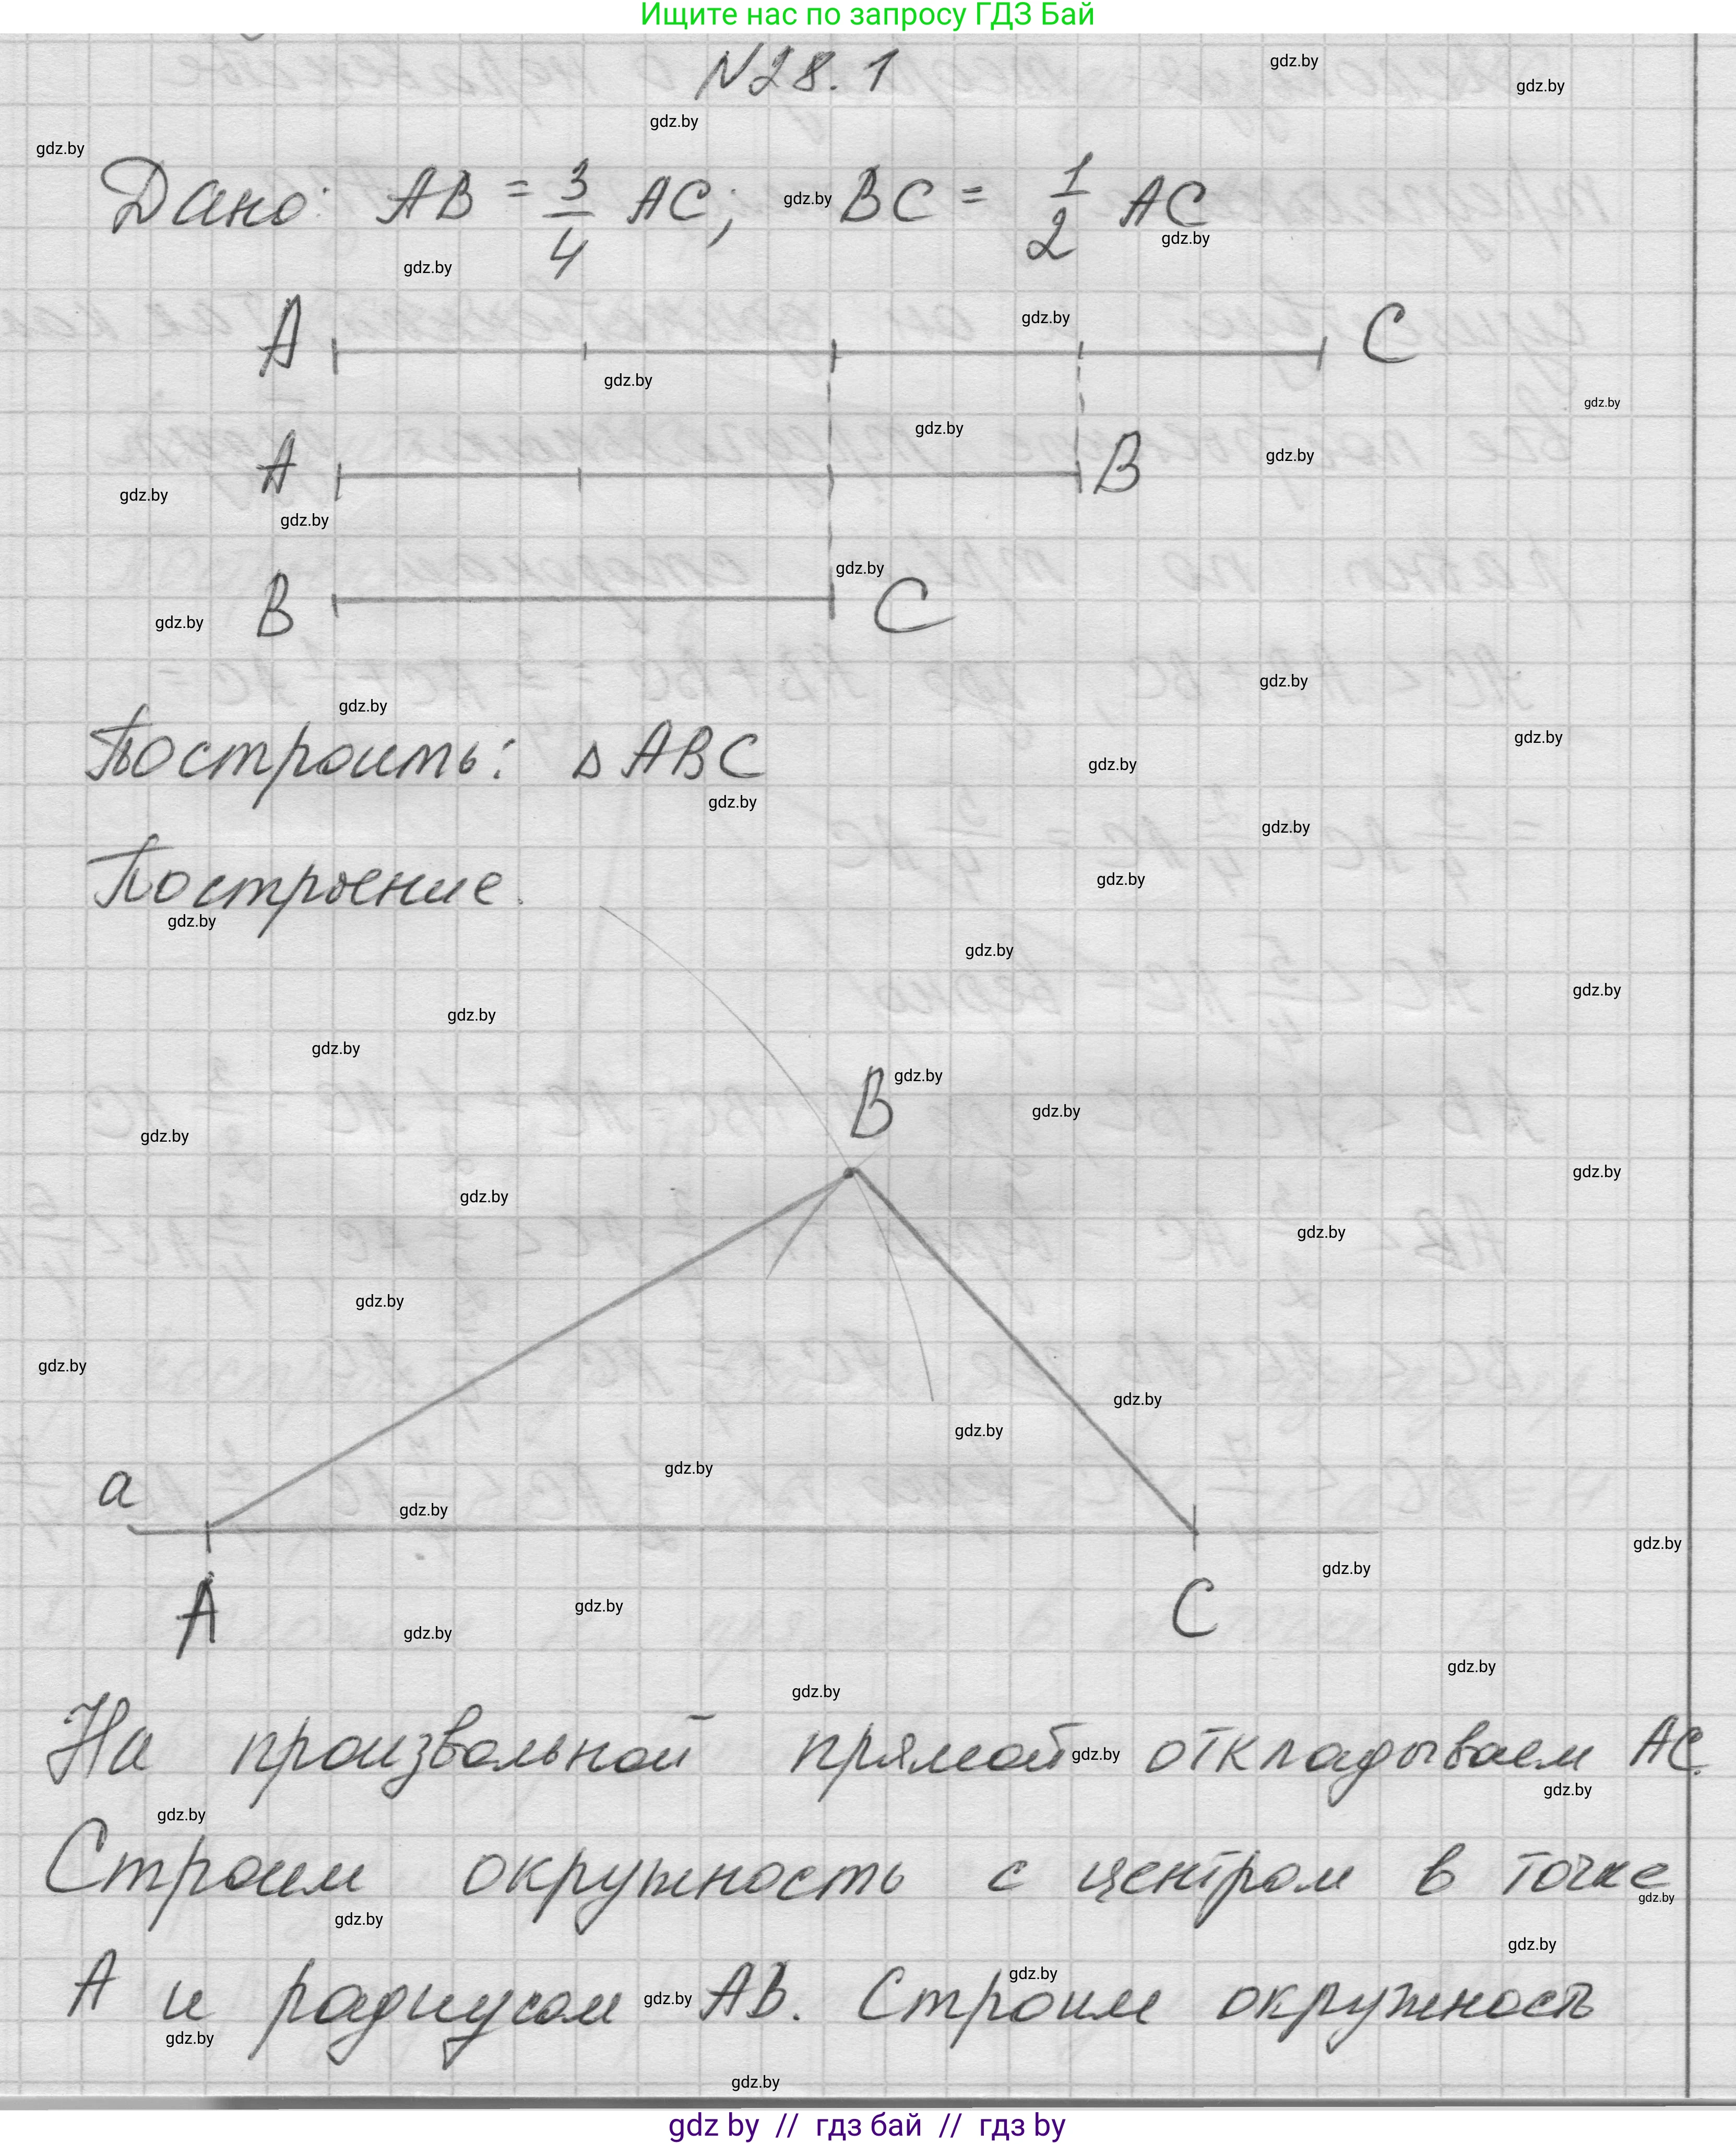 Ищите нас по запросу ГДЗ Бай
N28.1
Дано: AB = 3/4 AC; BC = 1/2 AC
A C
A B
B C
Построить: △ABC
Построение.
B
a
A C
На произвольной прямой откладываем AC.
Строим окружность с центром в точке
A и радиусом AB. Строим окружность
gdz by // гдз бай // гдз by
gdz.by